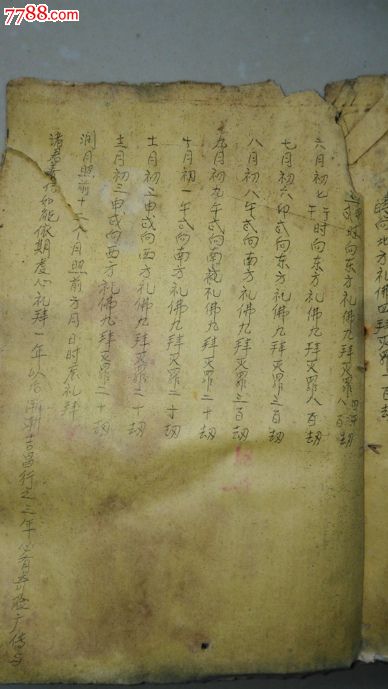 7788.com
中国收藏热线
时向东方礼佛九拜灭罪八百劫
六月初七午时向东方礼佛九拜灭罪八百劫
七月初六卯式向东方礼佛九拜灭罪三百劫
八月初八午式向南方礼佛九拜灭罪三百劫
九月初九午式向南礼佛九拜灭罪二十劫
十月初一午式向南方礼佛九拜灭罪二十劫
十一月初三申式向西方礼佛九拜灭罪二十劫
十二月初三申式向西方礼佛九拜灭罪二十劫
润月照前十二个月照前方向日时辰礼拜
诸君善信如能依期虔心礼拜一年以后渐渐吉昌行之三年必有奇验广传
向北方礼佛四拜灭罪一百劫